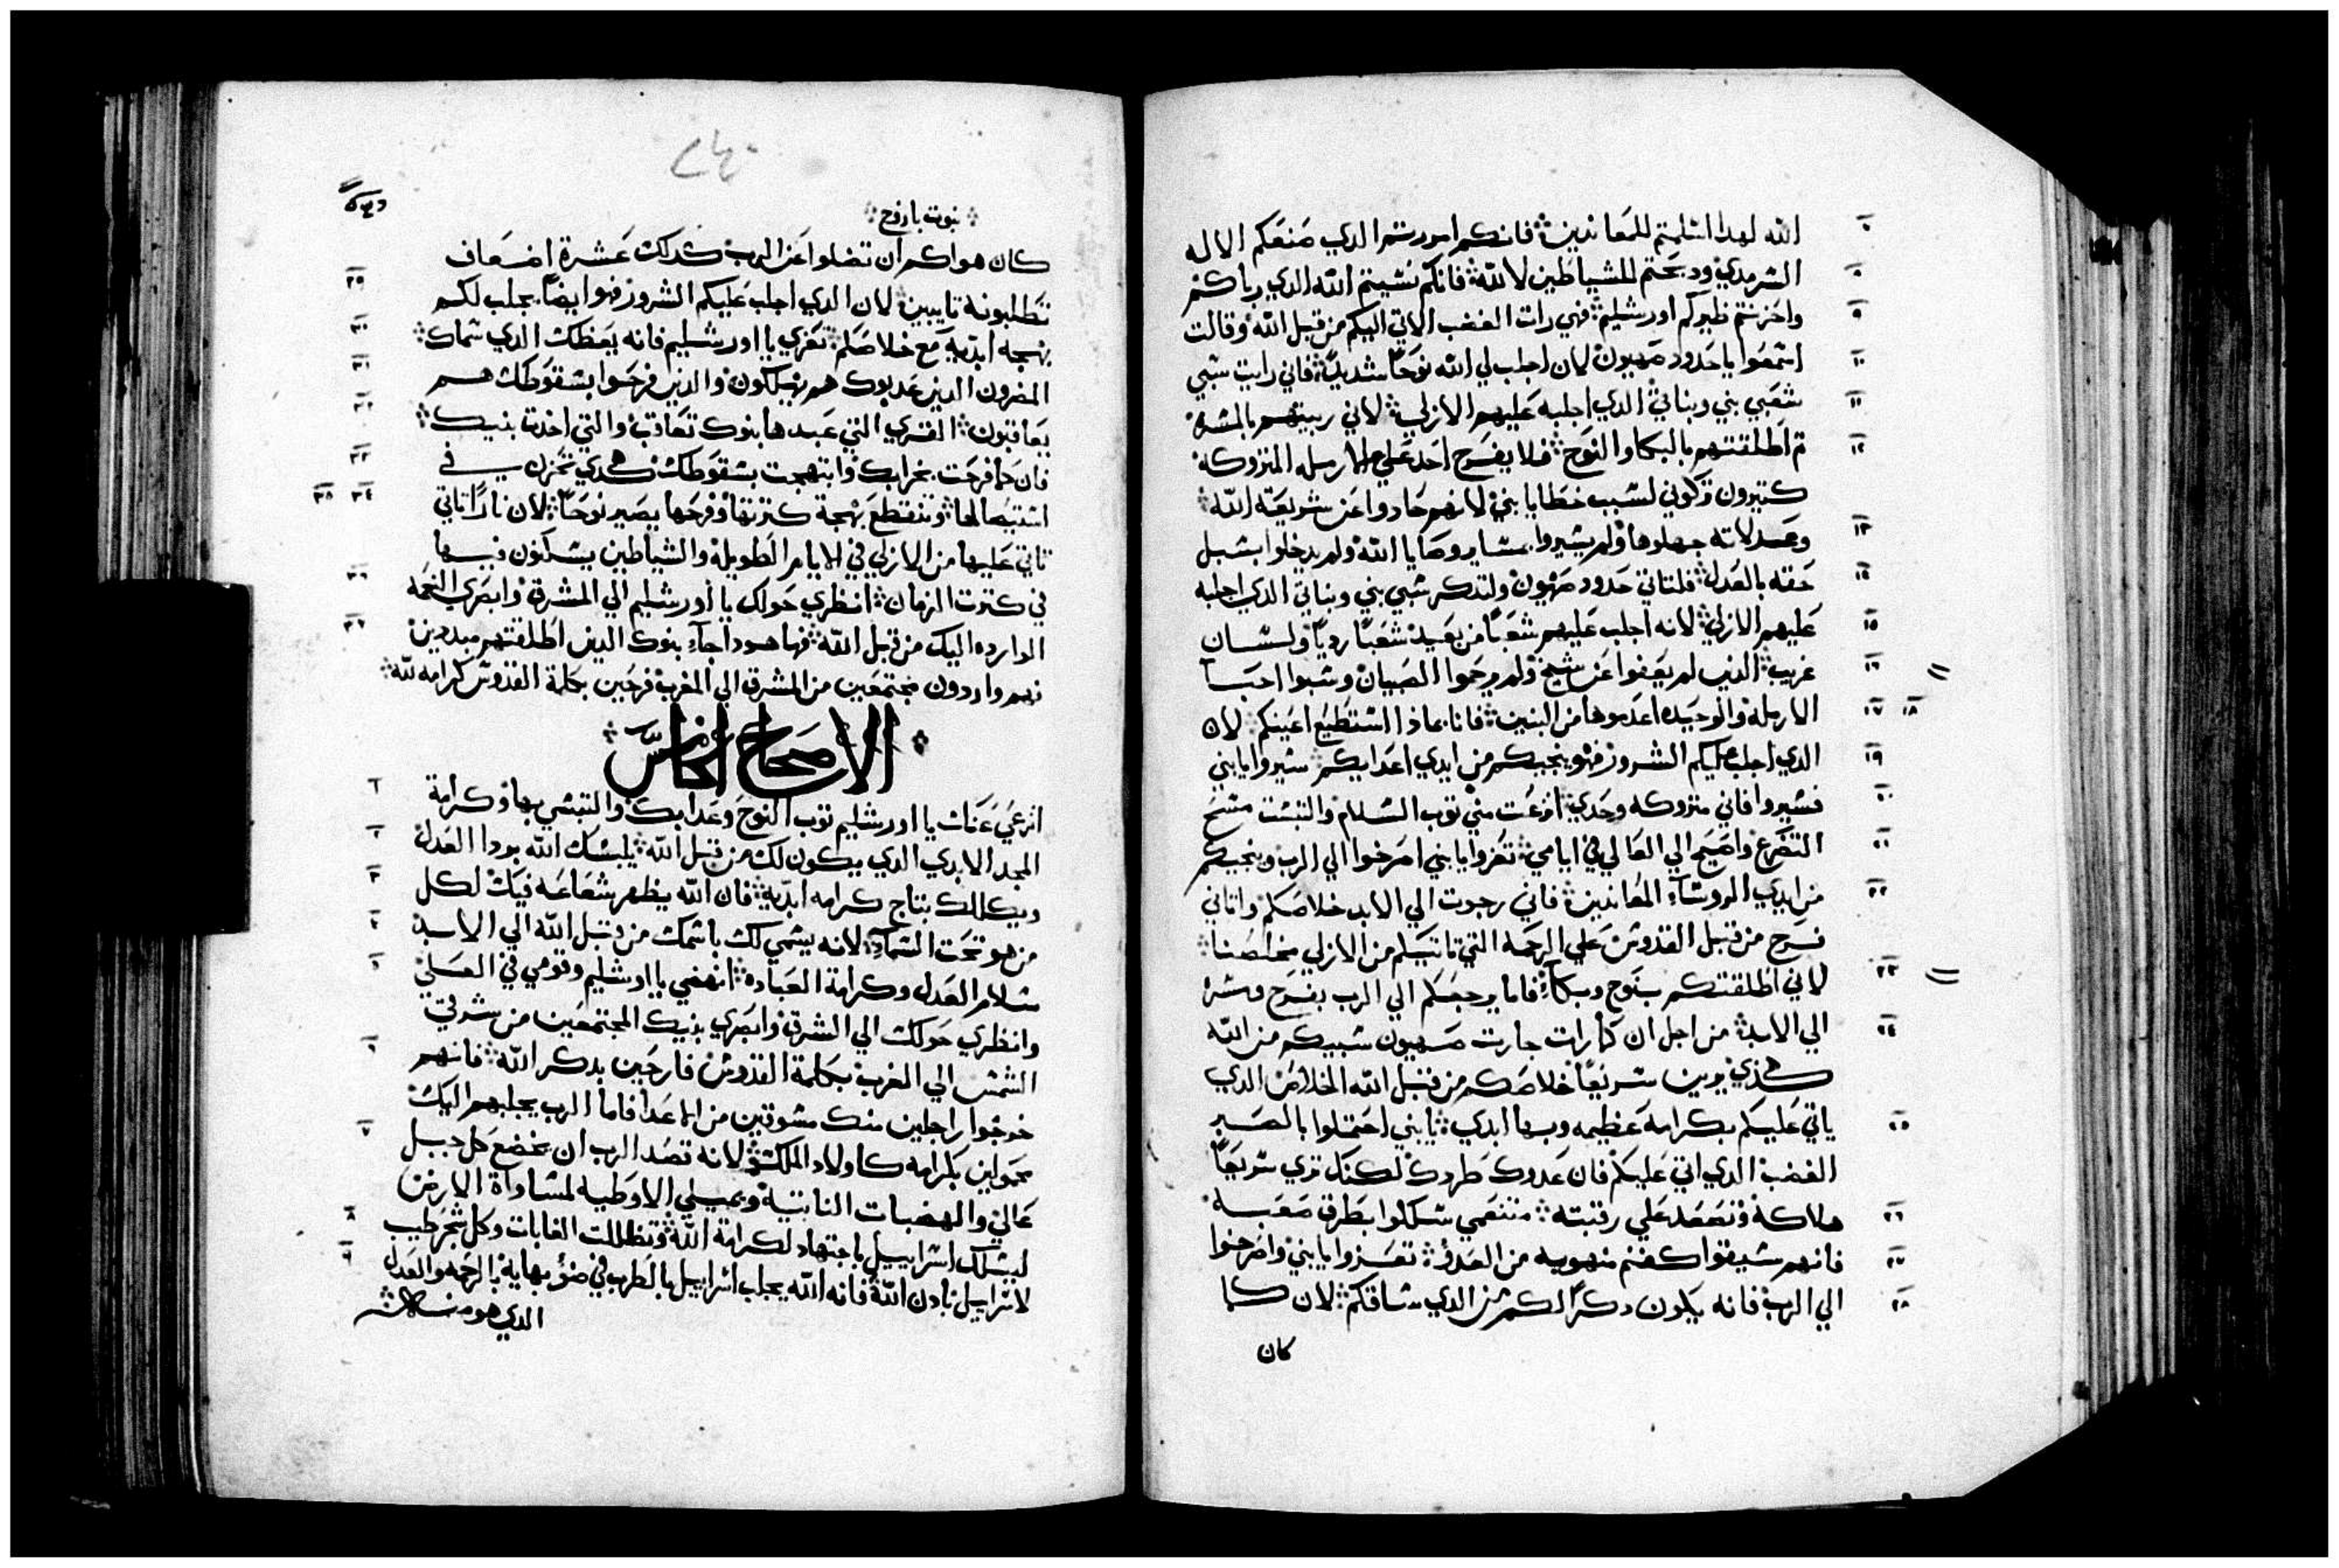 الله لهدا اسلمتم للمعاندين فانكم امررتم الدي صنعكم الاله
السرمدي ودبحتم للشياطين لا لله فانكم نسيتم الله الدي رباكم
واحزنتم ظيركم اورشليم فهي رات الغضب الاتي اليكم من قبل الله وقالت
اسمعوا يا حدود صهيون لان اجلب لي الله نوحًا شديدًا فاني رايت سبي
شعبي بني وبناتي الدي اجلبه عليهم الازلي لاني ربيتهم بالمسرة
ثم اطلقتهم بالبكا والنوح فلا يفرح احد علي الارمله المتروكه
كتيرون تركوني لسبب خطايا بني لانهم حادوا عن شريعة الله
وعدلاته جهلوها ولم يسيروا بمساير وصايا الله ولم يدخلوا بسبل
حقه بالعدل فلتاتي حدود صهيون ولتدكر سبي بني وبناتي الدي اجلبه
عليهم الازلي لانه اجلب عليهم شعبًا من بعيد شعبًا رديًا ولسان
غريب الدين لم يعفوا عن شيخ ولم يرحموا الصبيان وسبوا احبا
الارمله والوحيده اعدموها من البنين فانا بماذا استطيع اعينكم لان
الدي اجلب عليكم الشرور فهو ينجيكم من ايدي اعدايكم سيروا يا بني
فسيروا فاني متروكه وحدي انزعت مني توب السلام والتبست مسح
التضرع واصيح الي العالي في ايامي تعزوا يا بني اصرخوا الي الرب وينجيكم
من ايدي الروساء المعاندين فاني رجوت الي الابد خلاصكم واتاني
فرح من قبل القدوس علي الرحمه التي تاتيكم من الازلي مخلصنا
لاني اطلقتكم بنوح وبكاء فاما يرجعكم الي الرب بفرح ومسرة
الي الابد من اجل ان كما رات جارت صهيون سبيكم من الله
هكذي يرين سريعًا خلاصكم من قبل الله الخلاص الدي
ياتي عليكم بكرامة عظيمه وبها ابدي يا بني احتملوا بالصبر
الغضب الدي اتي عليكم فان عدوك طردك لكنك تري سريعًا
هلاكه وتصعد علي رقبته متنعمي سلكوا بطرق صعبه
فانهم سيقوا كغنم منهوبه من العدو تعزوا يا بني واصرخوا
الي الرب فانه يكون دكرًا لكم من الدي ساقكم لان كما
كان
نبوت باروخ
كان هواكم ان تضلوا عن الرب كدلك عشرة اضعاف
تطلبونه تايبين لان الدي اجلب عليكم الشرور فهو ايضًا يجلب لكم
بهجه ابدية مع خلاصكم تعزي يا اورشليم فانه يعظك الدي سماك
المضرون الدين عدبوك هم يهلكون والدين فرحوا بسقوطك هم
يعاقبون القري التي عبدها بنوك تعاقب والتي اخدت بنيك
فان كما فرحت بخرابك وابتهجت بسقوطك هكدي تحزن في
استيصالها وتنقطع بهجة كترتها وفرحها يصير نوحًا لان نارًا تاتي
تاتي عليها من الازلي في الايام الطويله والشياطين يسكنون فيها
في كترت الزمان انظري حولك يا اورشليم الي المشرق وابصري النعمه
الوارده اليك من قبل الله فها هودا جاء بنوك الدين اطلقتهم مبددين
فهم واردون مجتمعين من المشرق الي المغرب فرحين بكلمة القدوس كرامه لله
الاصحاح الخامس
انزعي عنك يا اورشليم توب النوح وعدابك والتبسي بها وكرامة
المجد الابدي الدي يكون لك من قبل الله يلبسك الله بردا العدل
ويكللك بتاج كرامه ابدية فان الله يظهر شعاعه فيك لكل
من هو تحت السماء لانه يسمي لك باسمك من قبل الله الي الابد
سلام العدل وكرامة العباده انهضي يا اورشليم وقومي في العلي
وانظري حولك الي الشرق وابصري بنيك المجتمعين من شرق
الشمس الي المغرب بكلمة القدوس فارحين بدكر الله فانهم
خرجوا راجلين منك مسوقين من الاعدا فاما الرب يجلبهم اليك
محمولين بكرامه كاولاد الملك لانه قصد الرب ان يخضع كل جبل
عالي والهضبات التابتة ويملي الاوطيه لمساواة الارض
ليسلك اسراييل باجتهاد لكرامة الله وتظللت الغابات وكل شجر طيب
لاسراييل بادن الله فانه الله يجلب اسراييل بالطرب في ضو بهايه بالرحمه والعدل
الدي هو منه